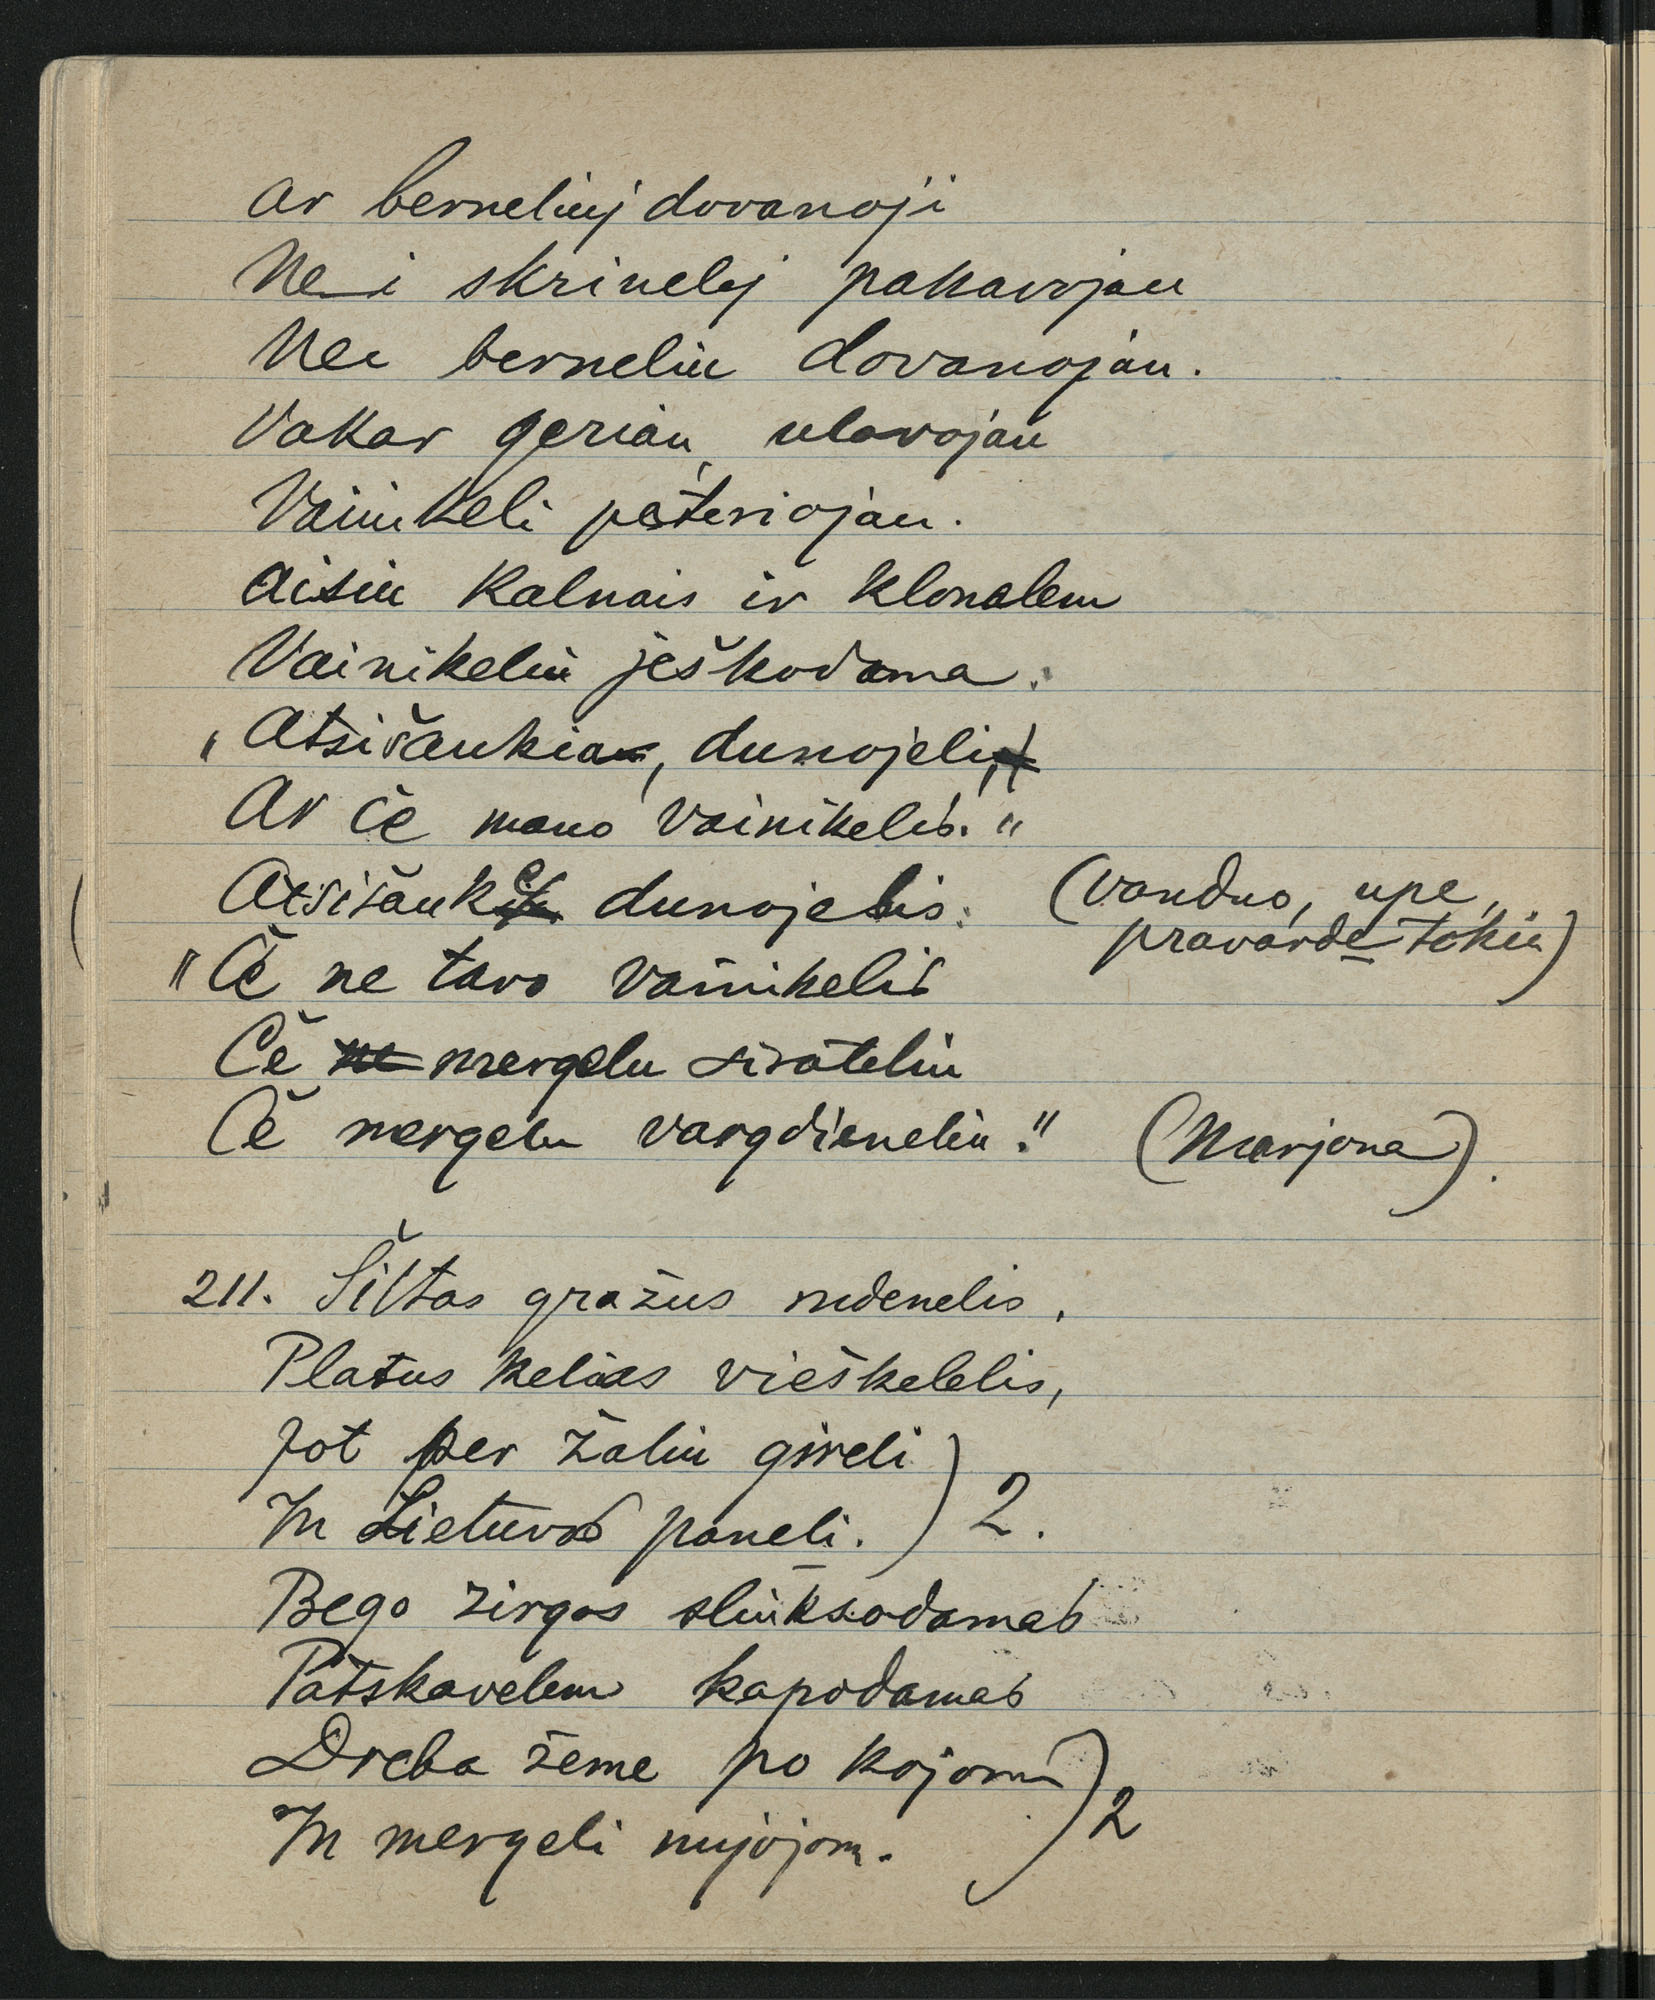 Ar berneliuj dovanoji
Nei skrinelėj pakavojau
Nei berneliu dovanojau.
Vakar geriau, ulavojau
Vainikeli pesteriojau.
Aisiu kalnais ir klonalem
Vainikeliu ješkodama.
"Atsišaukia, dunojeli,
Ar čė mano vainikelis."
Atsišauke dunojelis: (vanduo, upe,
pravarde tokia)
"Čė ne tavo vainikelis
Čė mergelu siratėliu
Čė mergelu vargdieneliu." (Marjona).
211. Šiltas gražus rudenelis,
Platus kelias vieškelelis,
Jot per žaliu gireli
In Lietuvos paneli. ) 2.
Bego žirgas sliuksodamas
Patskavelem kapodamas
Dreba žeme po kojom
In mergeli nujojom. ) 2